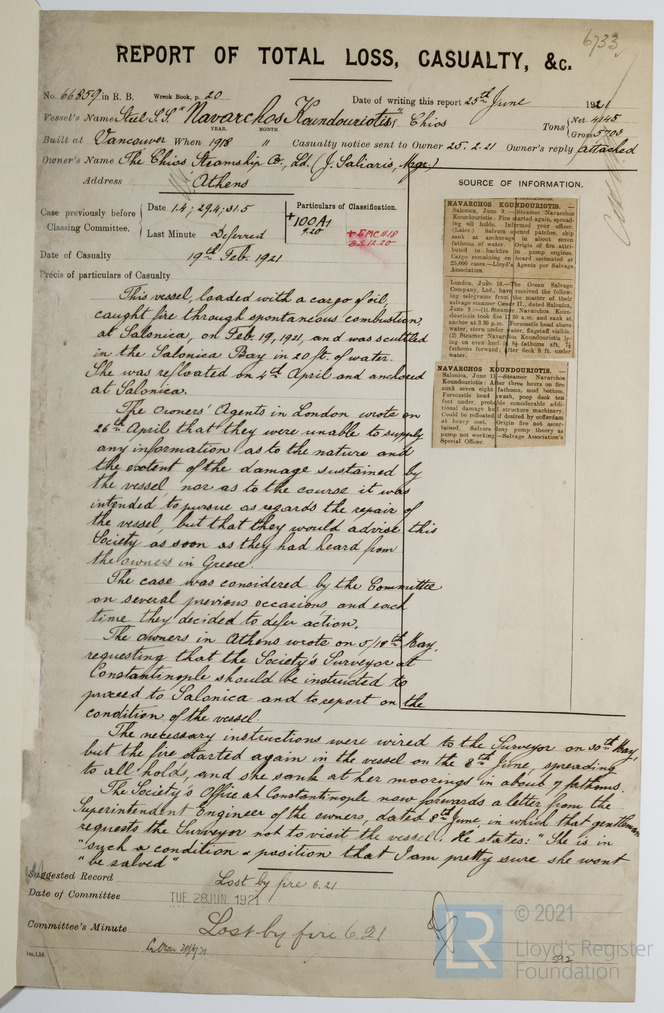 6733
REPORT OF TOTAL LOSS, CASUALTY, &c.
No. 66859 in R. B. Wreck Book, p. 20 Date of writing this report 25th June 1921
Vessel's Name Steel S.S. "Navarchos Koundouriotis", Chios Tons Net 4145 Gross 5703
Built at Vancouver When YEAR. 1918 MONTH. " Casualty notice sent to Owner 25.2.21 Owner's reply attached
Owner's Name The Chios Steamship Co., Ld. (J. Saliaris, Mgr.)
Address Athens
Case previously before Classing Committee. Date 1.4; 29.4; 31.5
Last Minute Deferred
Particulars of Classification.
+100A1
4.20
+EMC 11.18
B.S. 12.20
Date of Casualty 19th Feb. 1921
SOURCE OF INFORMATION.
NAVARCHOS KOUNDOURIOTIS. —
Salonica, June 9.—Steamer Navarchos
Koundouriotis: Fire started again, spread-
ing all holds. Informed your officer.
(Later.) Salvors opened patches, ship
sank at anchorage in about seven
fathoms of water. Origin of fire attri-
buted to backfire in pump engines.
Cargo remaining on board estimated at
25,000 cases.—Lloyd's Agents per Salvage
Association.
London, June 10.—The Ocean Salvage
Company, Ltd., have received the follow-
ing telegrams from the master of their
salvage steamer dated Salonica,
June 9:—(1) Steamer Navarchos Koun-
douriotis took fire a.m. and sank at
anchor at 3 30 p.m. Forecastle head above
water, stern under water, flagstaff visible.
(2) Steamer Navarchos Koundouriotis ly-
ing on even keel in fathoms aft, 7½
fathoms forward; after deck 8 ft. under
water.
NAVARCHOS KOUNDOURIOTIS. —
Salonica, June 11.—Steamer Navarchos
Koundouriotis: After three hours on fire
sunk seven eight fathoms, mud bottom.
Forecastle head awash, poop deck ten
feet under, probable considerable addi-
tional damage hull structure machinery.
Could be refloated if desired by cofferdam
at heavy cost. Origin fire not ascer-
tained. Salvors deny pump theory as
pump not working.—Salvage Association's
Special Officer.
Précis of particulars of Casualty
This vessel, loaded with a cargo of oil,
caught fire through spontaneous combustion,
at Salonica, on Feb. 19, 1921, and was scuttled
in the Salonica Bay in 20 ft. of water.
She was refloated on 4th April and anchored
at Salonica.
The Owners' Agents in London wrote on
26th April that they were unable to supply
any information as to the nature and
the extent of the damage sustained by
the vessel, nor as to the course it was
intended to pursue as regards the repair of
the vessel, but that they would advise this
Society as soon as they had heard from
the owners in Greece.
The case was considered by the Committee
on several previous occasions, and each
time they decided to defer action.
The owners in Athens wrote on 5/18th May,
requesting that the Society's Surveyor at
Constantinople should be instructed to
proceed to Salonica and to report on the
condition of the vessel.
The necessary instructions were wired to the Surveyor on 30th May,
but the fire started again in the vessel on the 8th June, spreading
to all holds, and she sank at her moorings in about 7 fathoms.
The Society's Office at Constantinople now forwards a letter from the
Superintendent Engineer of the owners, dated 8th June, in which that gentleman
requests the Surveyor not to visit the vessel. He states: "She is in
"such a condition & position that I am pretty sure she wont
"be salved"
Suggested Record Lost by fire 6.21
Date of Committee TUE. 28 JUN. 1921
Committee's Minute Lost by fire 6.21
© 2021
LR
Lloyd's Register
Foundation